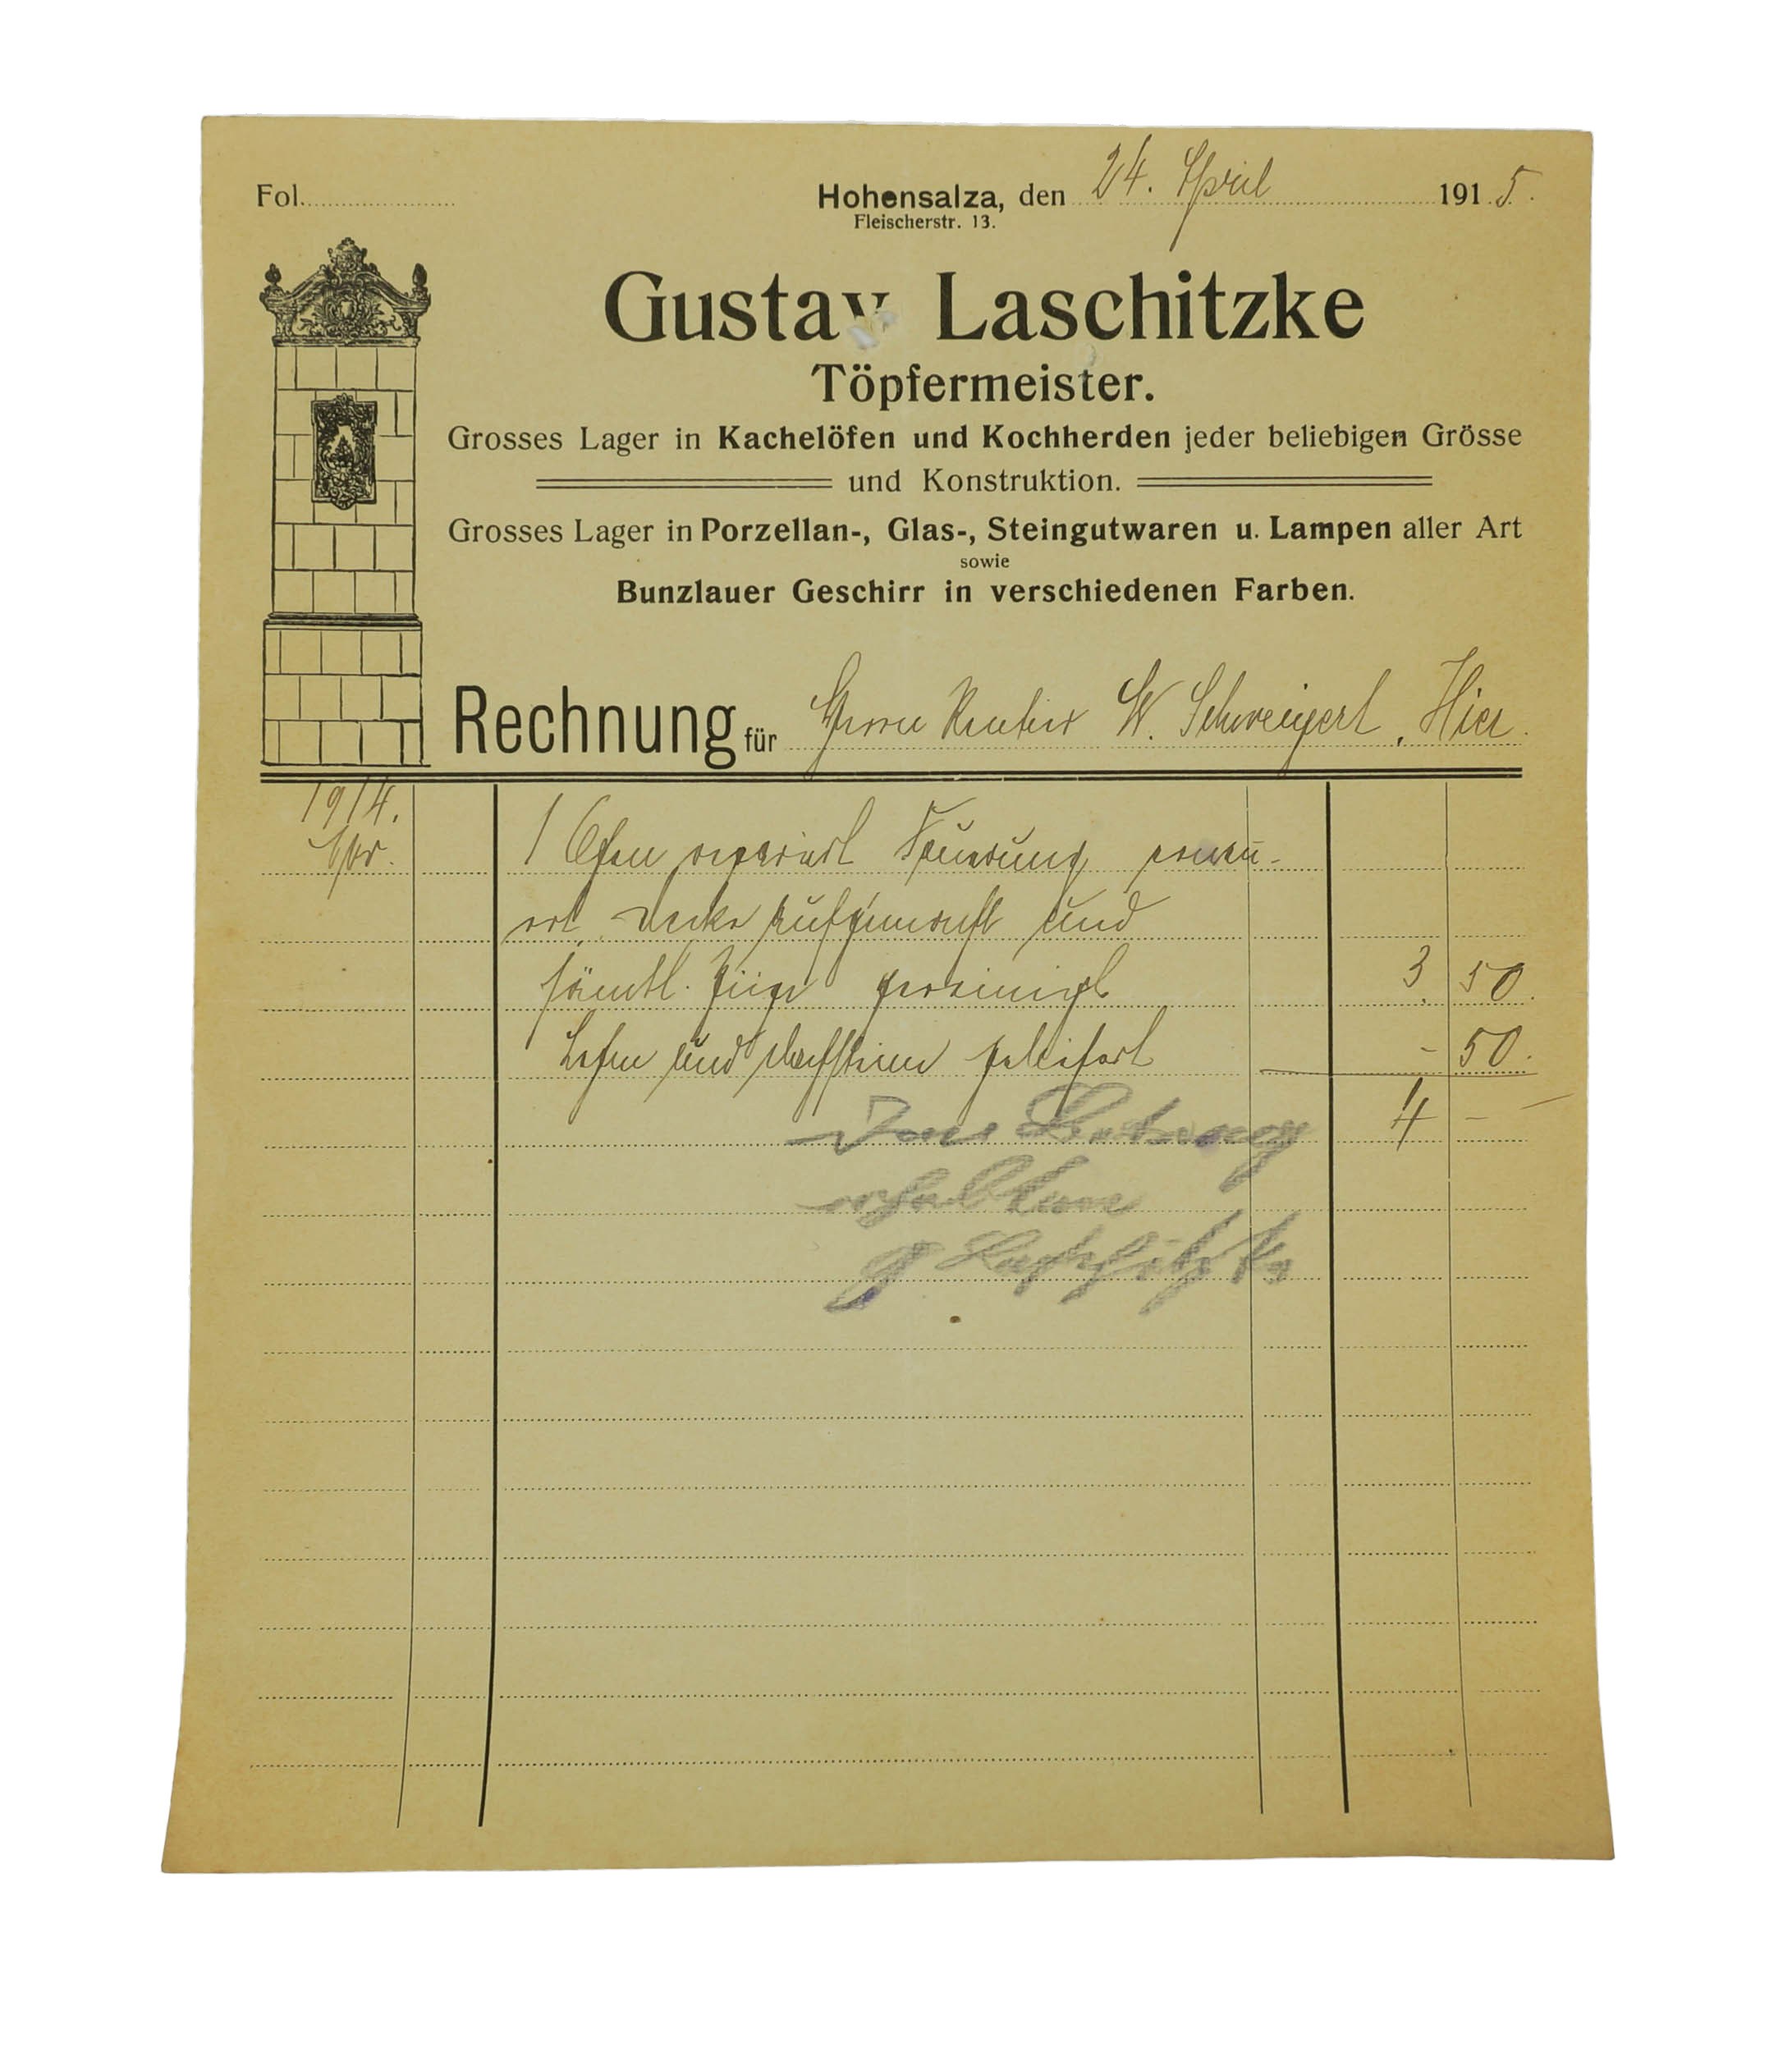 Fol.
Hohensalza, den 24. April 1915.
Fleischerstr. 13.
Gustav Laschitzke
Töpfermeister.
Grosses Lager in Kachelöfen und Kochherden jeder beliebigen Grösse
und Konstruktion.
Grosses Lager in Porzellan-, Glas-, Steingutwaren u. Lampen aller Art
sowie
Bunzlauer Geschirr in verschiedenen Farben.
Rechnung für Herrn Rentier W. Schweigert, Hier.
1914.
1 Ofen repariert Feuerung erneu-
ert, Decke aufgemacht und
sämtl. Züge gereinigt 3. 50.
Lehm und geliefert - 50.
4 - -
erhalten
G Laschitzke